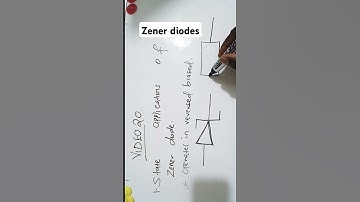 Zener diodes
VIDEO 20
1. State applications of
Zener diode.
> Operates in reversed biased.